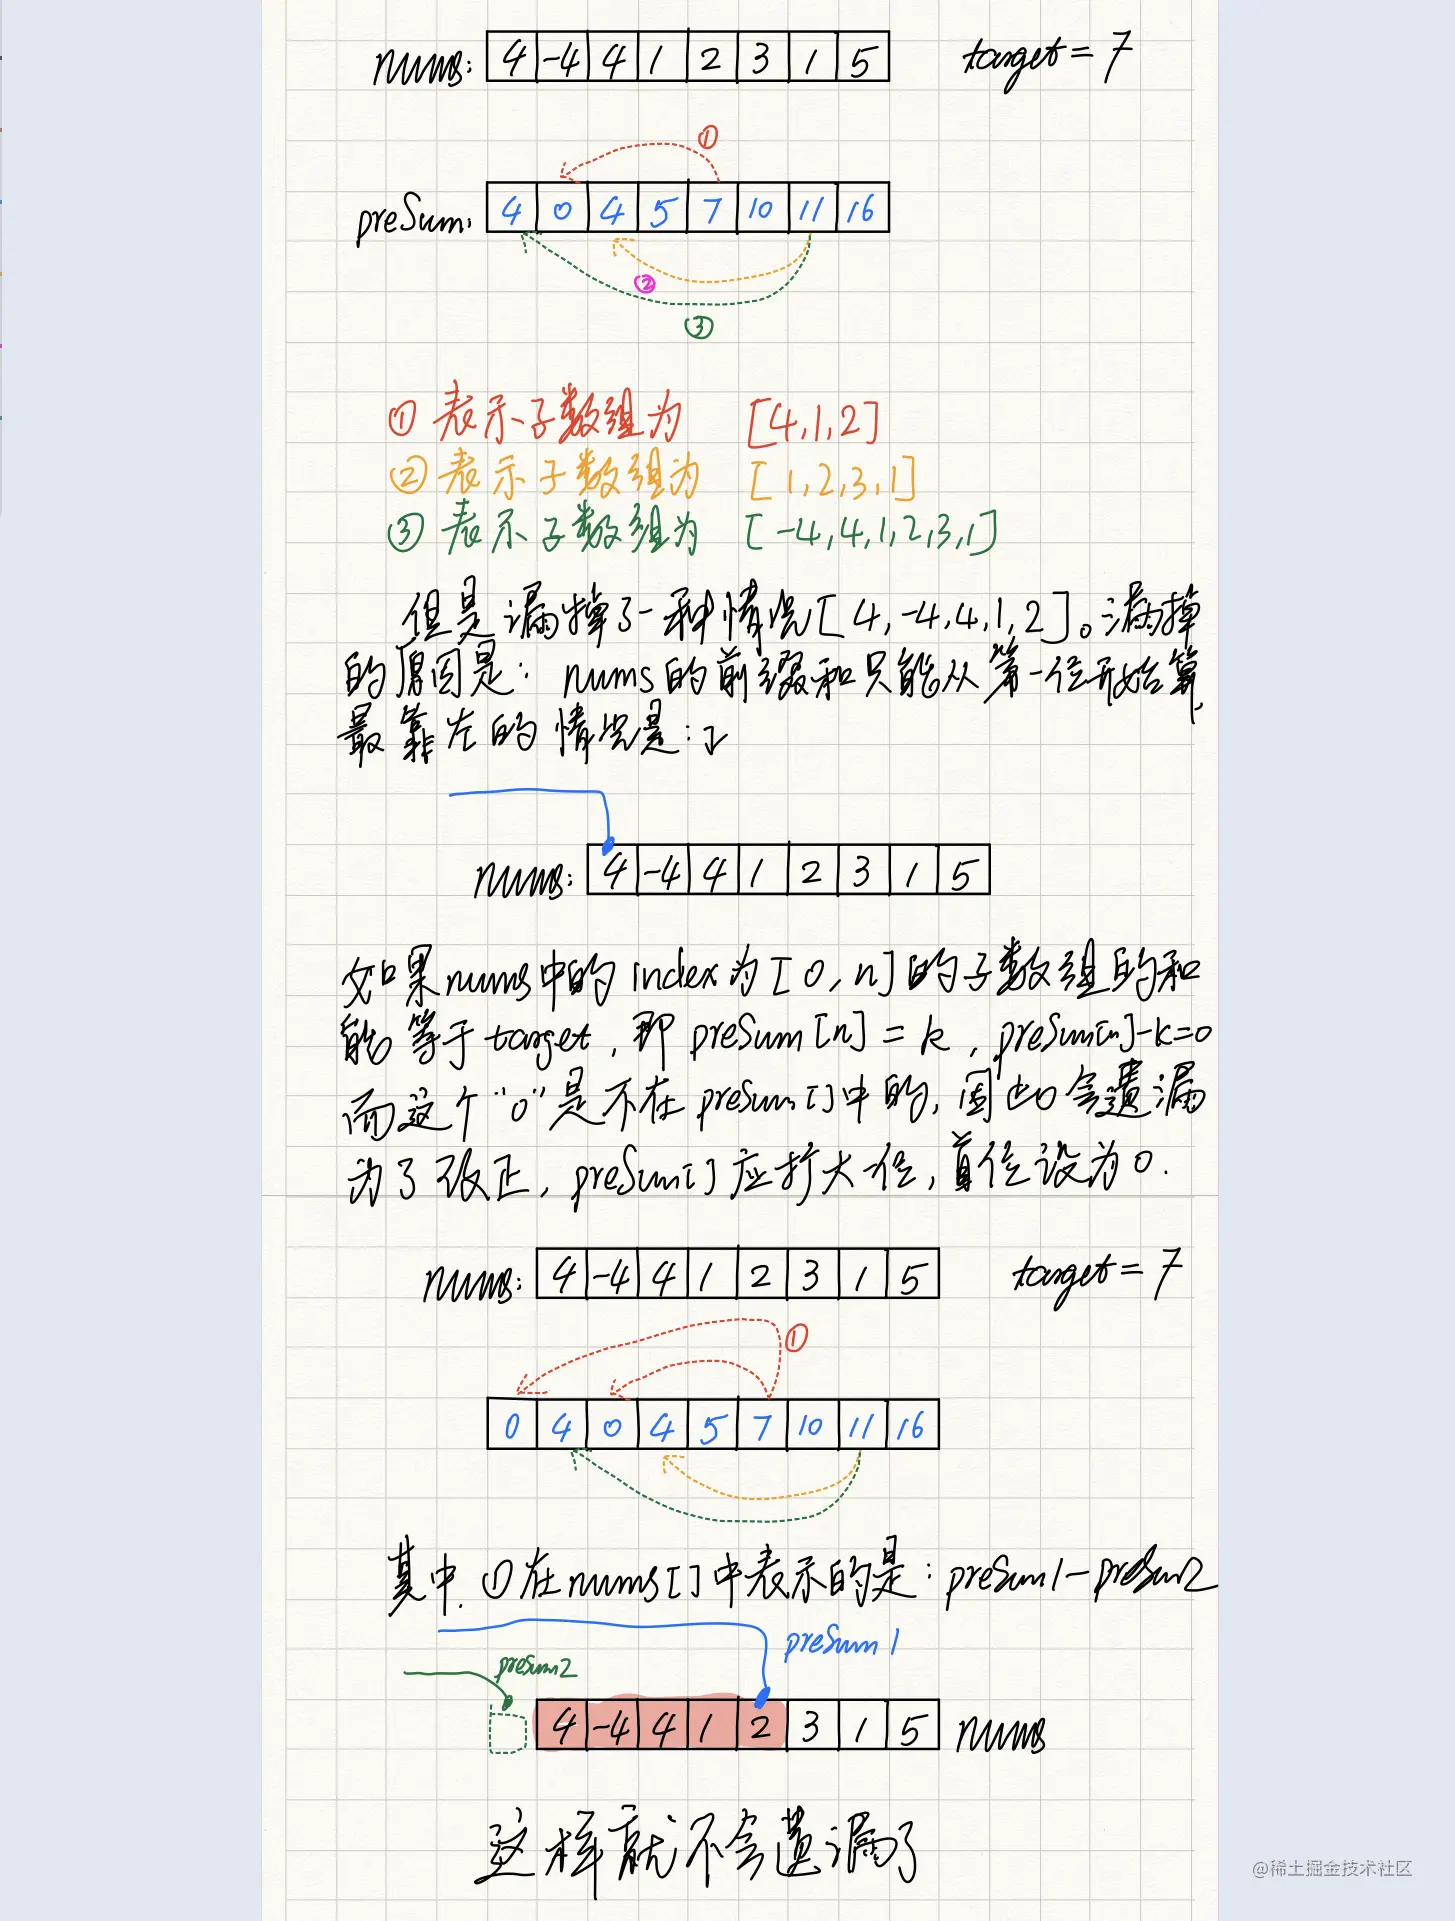 nums: 4 -4 4 1 2 3 1 5 target = 7
①
preSum: 4 0 4 5 7 10 11 16
②
③
① 表示子数组为 [4,1,2]
② 表示子数组为 [1,2,3,1]
③ 表示子数组为 [-4,4,1,2,3,1]
但是漏掉了一种情况[4,-4,4,1,2]。漏掉
的原因是: nums的前缀和只能从第一位开始算,
最靠左的情况是:↓
nums: 4 -4 4 1 2 3 1 5
如果nums中的index为[0,n]的子数组的和
能等于target, 即preSum[n] = k, preSum[n]-k=0
而这个"0"是不在preSum[]中的, 因此会遗漏
为了改正, preSum[]应扩大一位, 首位设为0.
nums: 4 -4 4 1 2 3 1 5 target = 7
①
0 4 0 4 5 7 10 11 16
其中. ①在nums[]中表示的是: preSum1-preSum2
preSum1
preSum2
4 -4 4 1 2 3 1 5 nums
这样就不会遗漏了
@稀土掘金技术社区